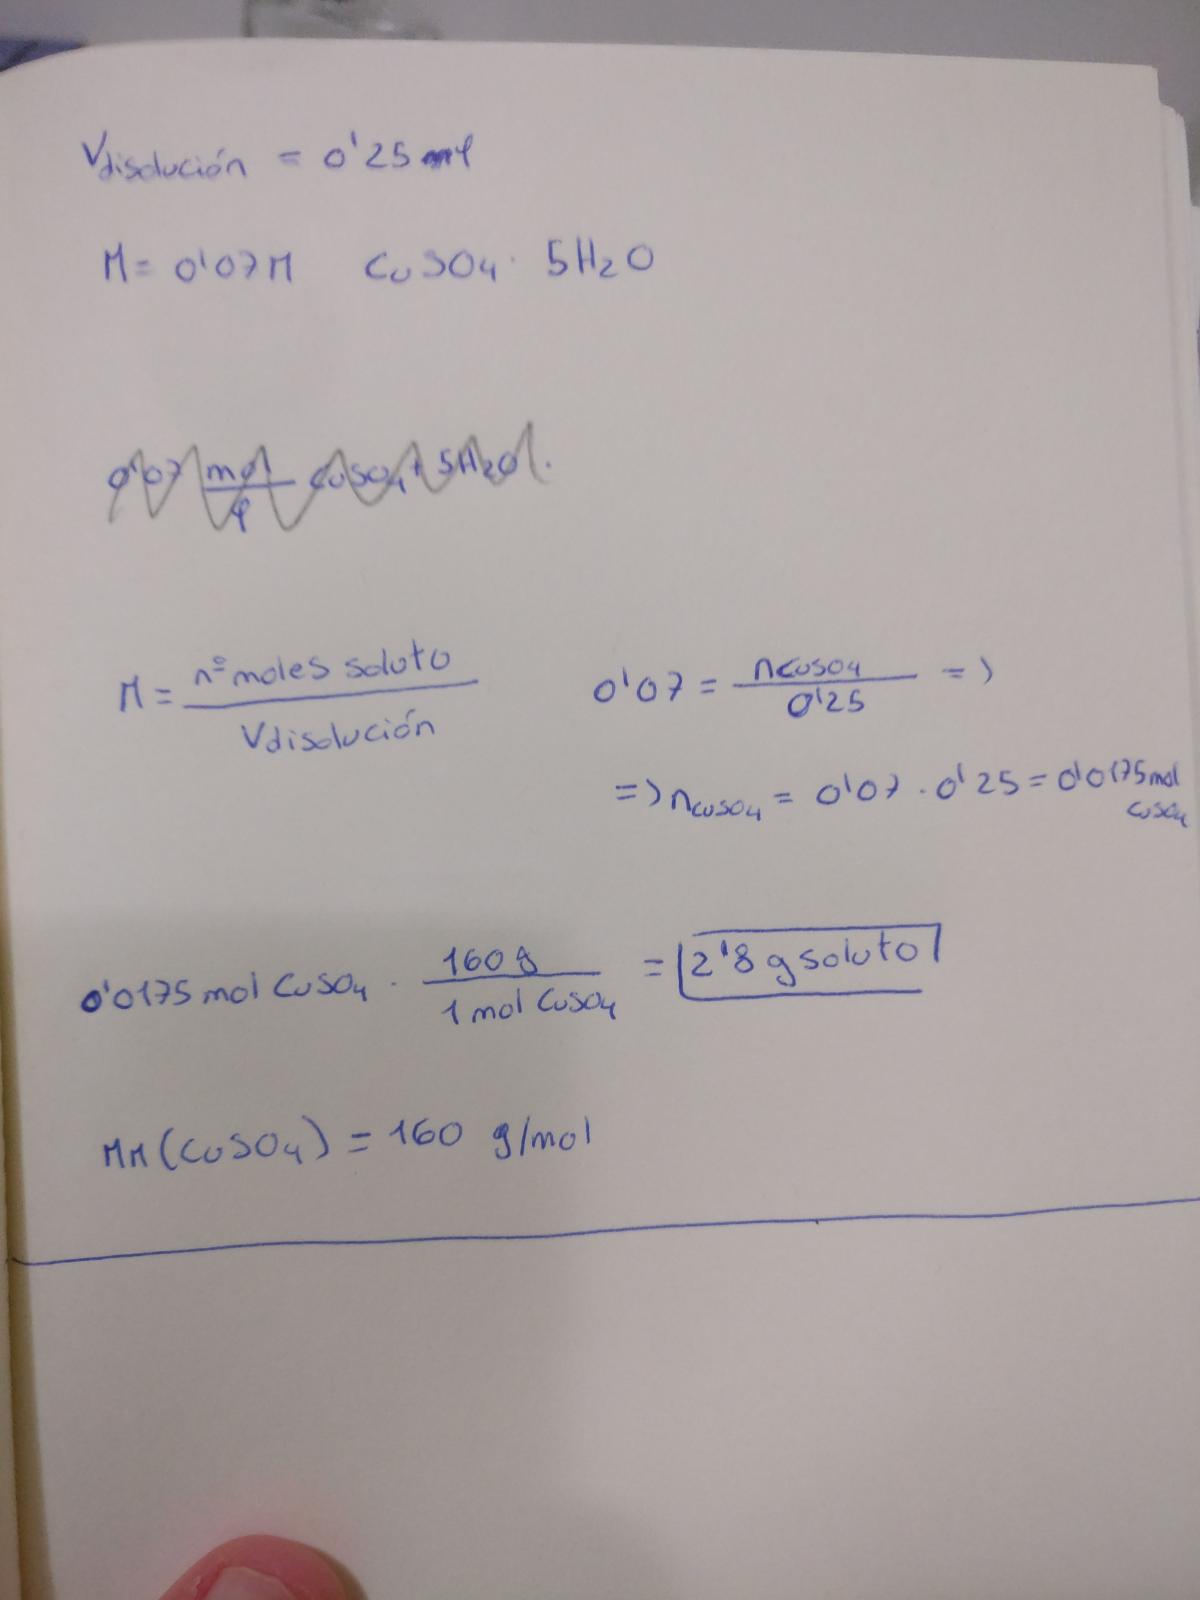 Vdisolución = 0'25 l
M = 0'07M CuSO4 · 5H2O
0'07 mol/l CuSO4 · 5H2O.
M = nº moles soluto / Vdisolución
0'07 = nCuSO4 / 0'25 =>
=> nCuSO4 = 0'07 · 0'25 = 0'0175 mol CuSO4
0'0175 mol CuSO4 · 160 g / 1 mol CuSO4 = 2'8 g soluto
MM (CuSO4) = 160 g/mol